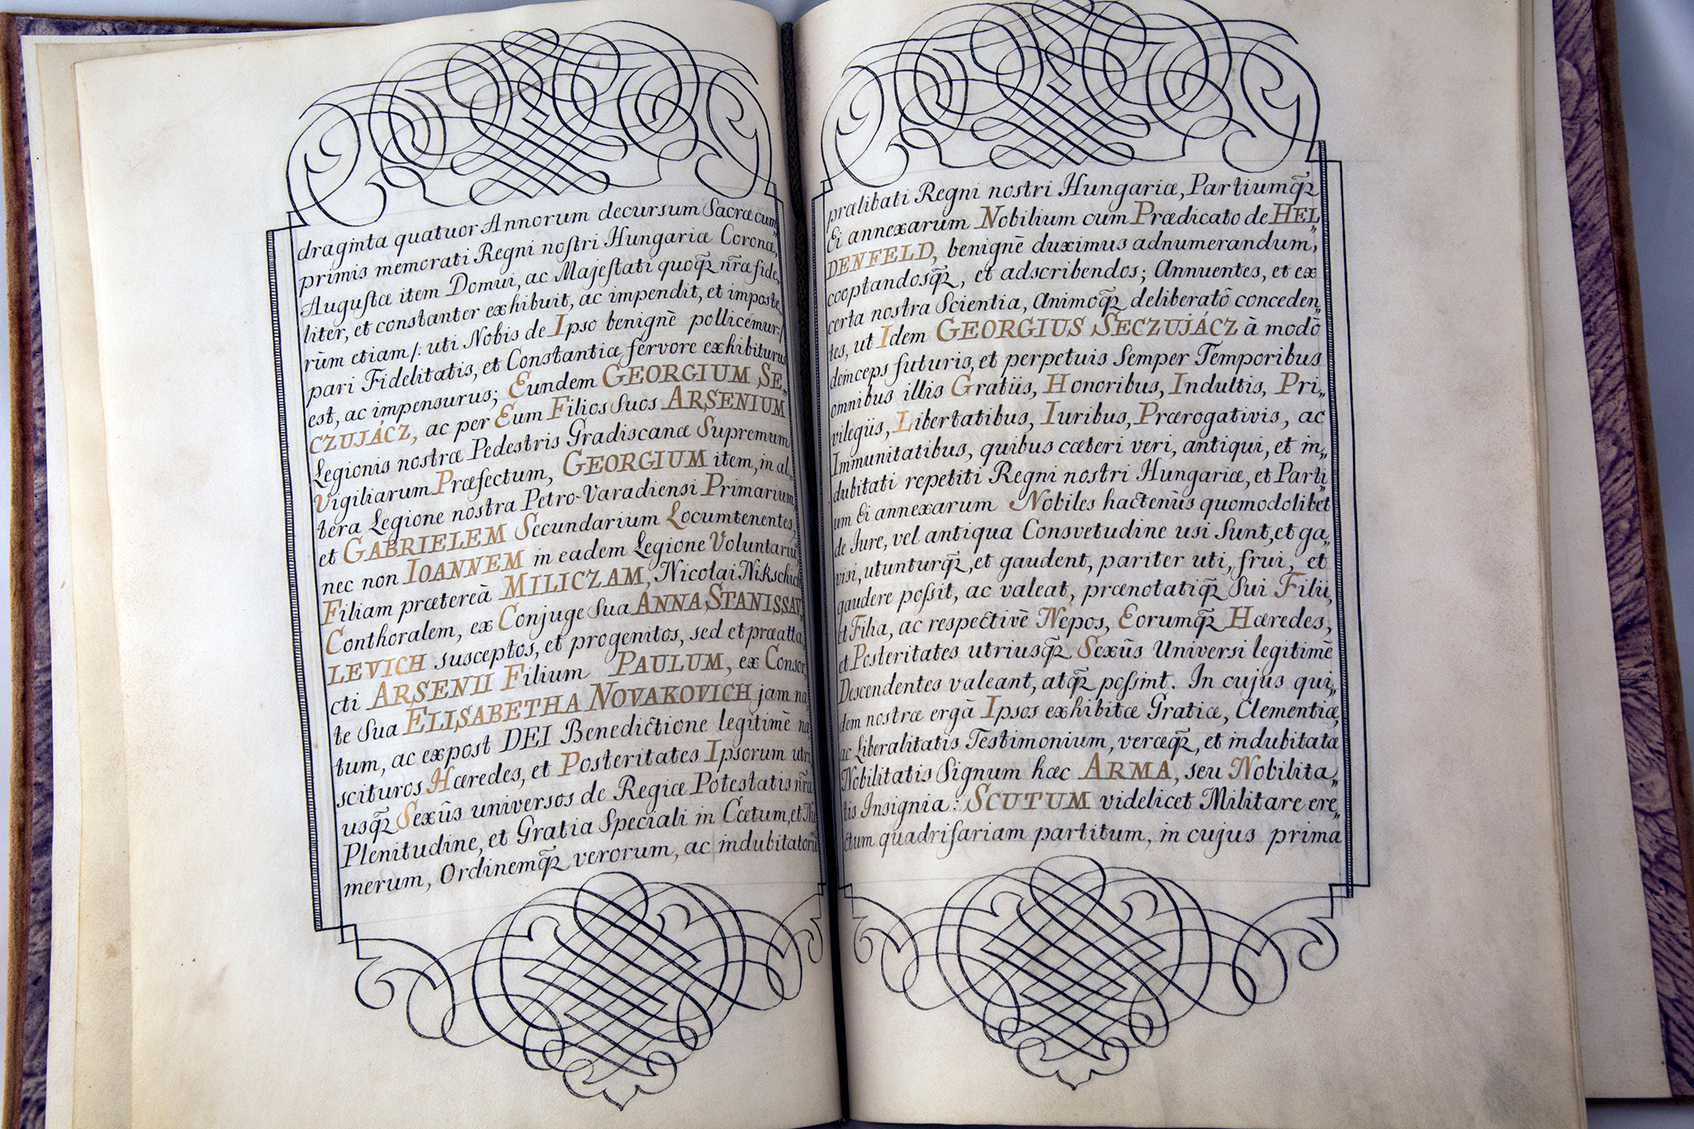 draginta quatuor Annorum decursum Sacræ cum„
primis memorati Regni nostri Hungariæ Coronæ,
Augustæ item Domui, ac Majestati quoqꝫ nr̃æ fide„
liter, et constanter exhibuit, ac impendit, et imposte„
rùm etiam /: uti Nobis de Ipso benignè pollicemur :/
pari Fidelitatis, et Constantiæ fervore exhibiturus
est, ac impensurus; Eundem GEORGIUM SE„
CZUJÁCZ, ac per Eum Filios Suos ARSENIUM
Legionis nostræ Pedestris Gradiscanæ Supremum
Vigiliarum Præfectum, GEORGIUM item, in al„
tera Legione nostra Petro-Varadiensi Primarium,
et GABRIELEM Secundarium Locumtenentes,
nec non IOANNEM in eadem Legione Voluntarium
Filiam prætereà MILICZAM, Nicolai Nikschich
Conthoralem, ex Conjuge Sua ANNA STANISSAV„
LEVICH susceptos, et progenitos, sed et præatta„
cti ARSENII Filium PAULUM, ex Consor„
te Sua ELISABETHA NOVAKOVICH jam na„
tum, ac expost DEI Benedictione legitimè na„
scituros Hæredes, et Posteritates Ipsorum utri„
usqꝫ Sexûs universos de Regiæ Potestatis nr̃æ
Plenitudine, et Gratia Speciali in Cœtum, et Nu„
merum, Ordinemqꝫ verorum, ac indubitatorũ
prælibati Regni nostri Hungariæ, Partiumqꝫ
Ei annexarum Nobilium cum Prædicato de HEL„
DENFELD, benignè duximus adnumerandum,
cooptandosqꝫ, et adscribendos; Annuentes, et ex
certa nostra Scientia, Animoqꝫ deliberatô conceden„
tes, ut Idem GEORGIUS SECZUJÁCZ à modô
deinceps futuris, et perpetuis Semper Temporibus
omnibus illis Gratiis, Honoribus, Indultis, Pri„
vilegiis, Libertatibus, Iuribus, Prærogativis, ac
Immunitatibus, quibus cæteri veri, antiqui, et in„
dubitati repetiti Regni nostri Hungariæ, et Parti„
um Ei annexarum Nobiles hactenùs quomodolibet
de Jure, vel antiqua Consvetudine usi Sunt, et ga„
visi, utunturqꝫ, et gaudent, pariter uti, frui, et
gaudere possit, ac valeat, prænotatiqꝫ Sui Filii,
et Filia, ac respectivè Nepos, Eorumqꝫ Hæredes,
et Posteritates utriusqꝫ Sexûs Universi legitimè
Descendentes valeant, atqꝫ possint. In cujus qui„
dem nostræ ergà Ipsos exhibitæ Gratiæ, Clementiæ,
ac Liberalitatis Testimonium, veræqꝫ, et indubitatæ
Nobilitatis Signum hæc ARMA, seu Nobilita„
tis Insignia: SCUTUM videlicet Militare ere„
ctum quadrifariam partitum, in cujus prima